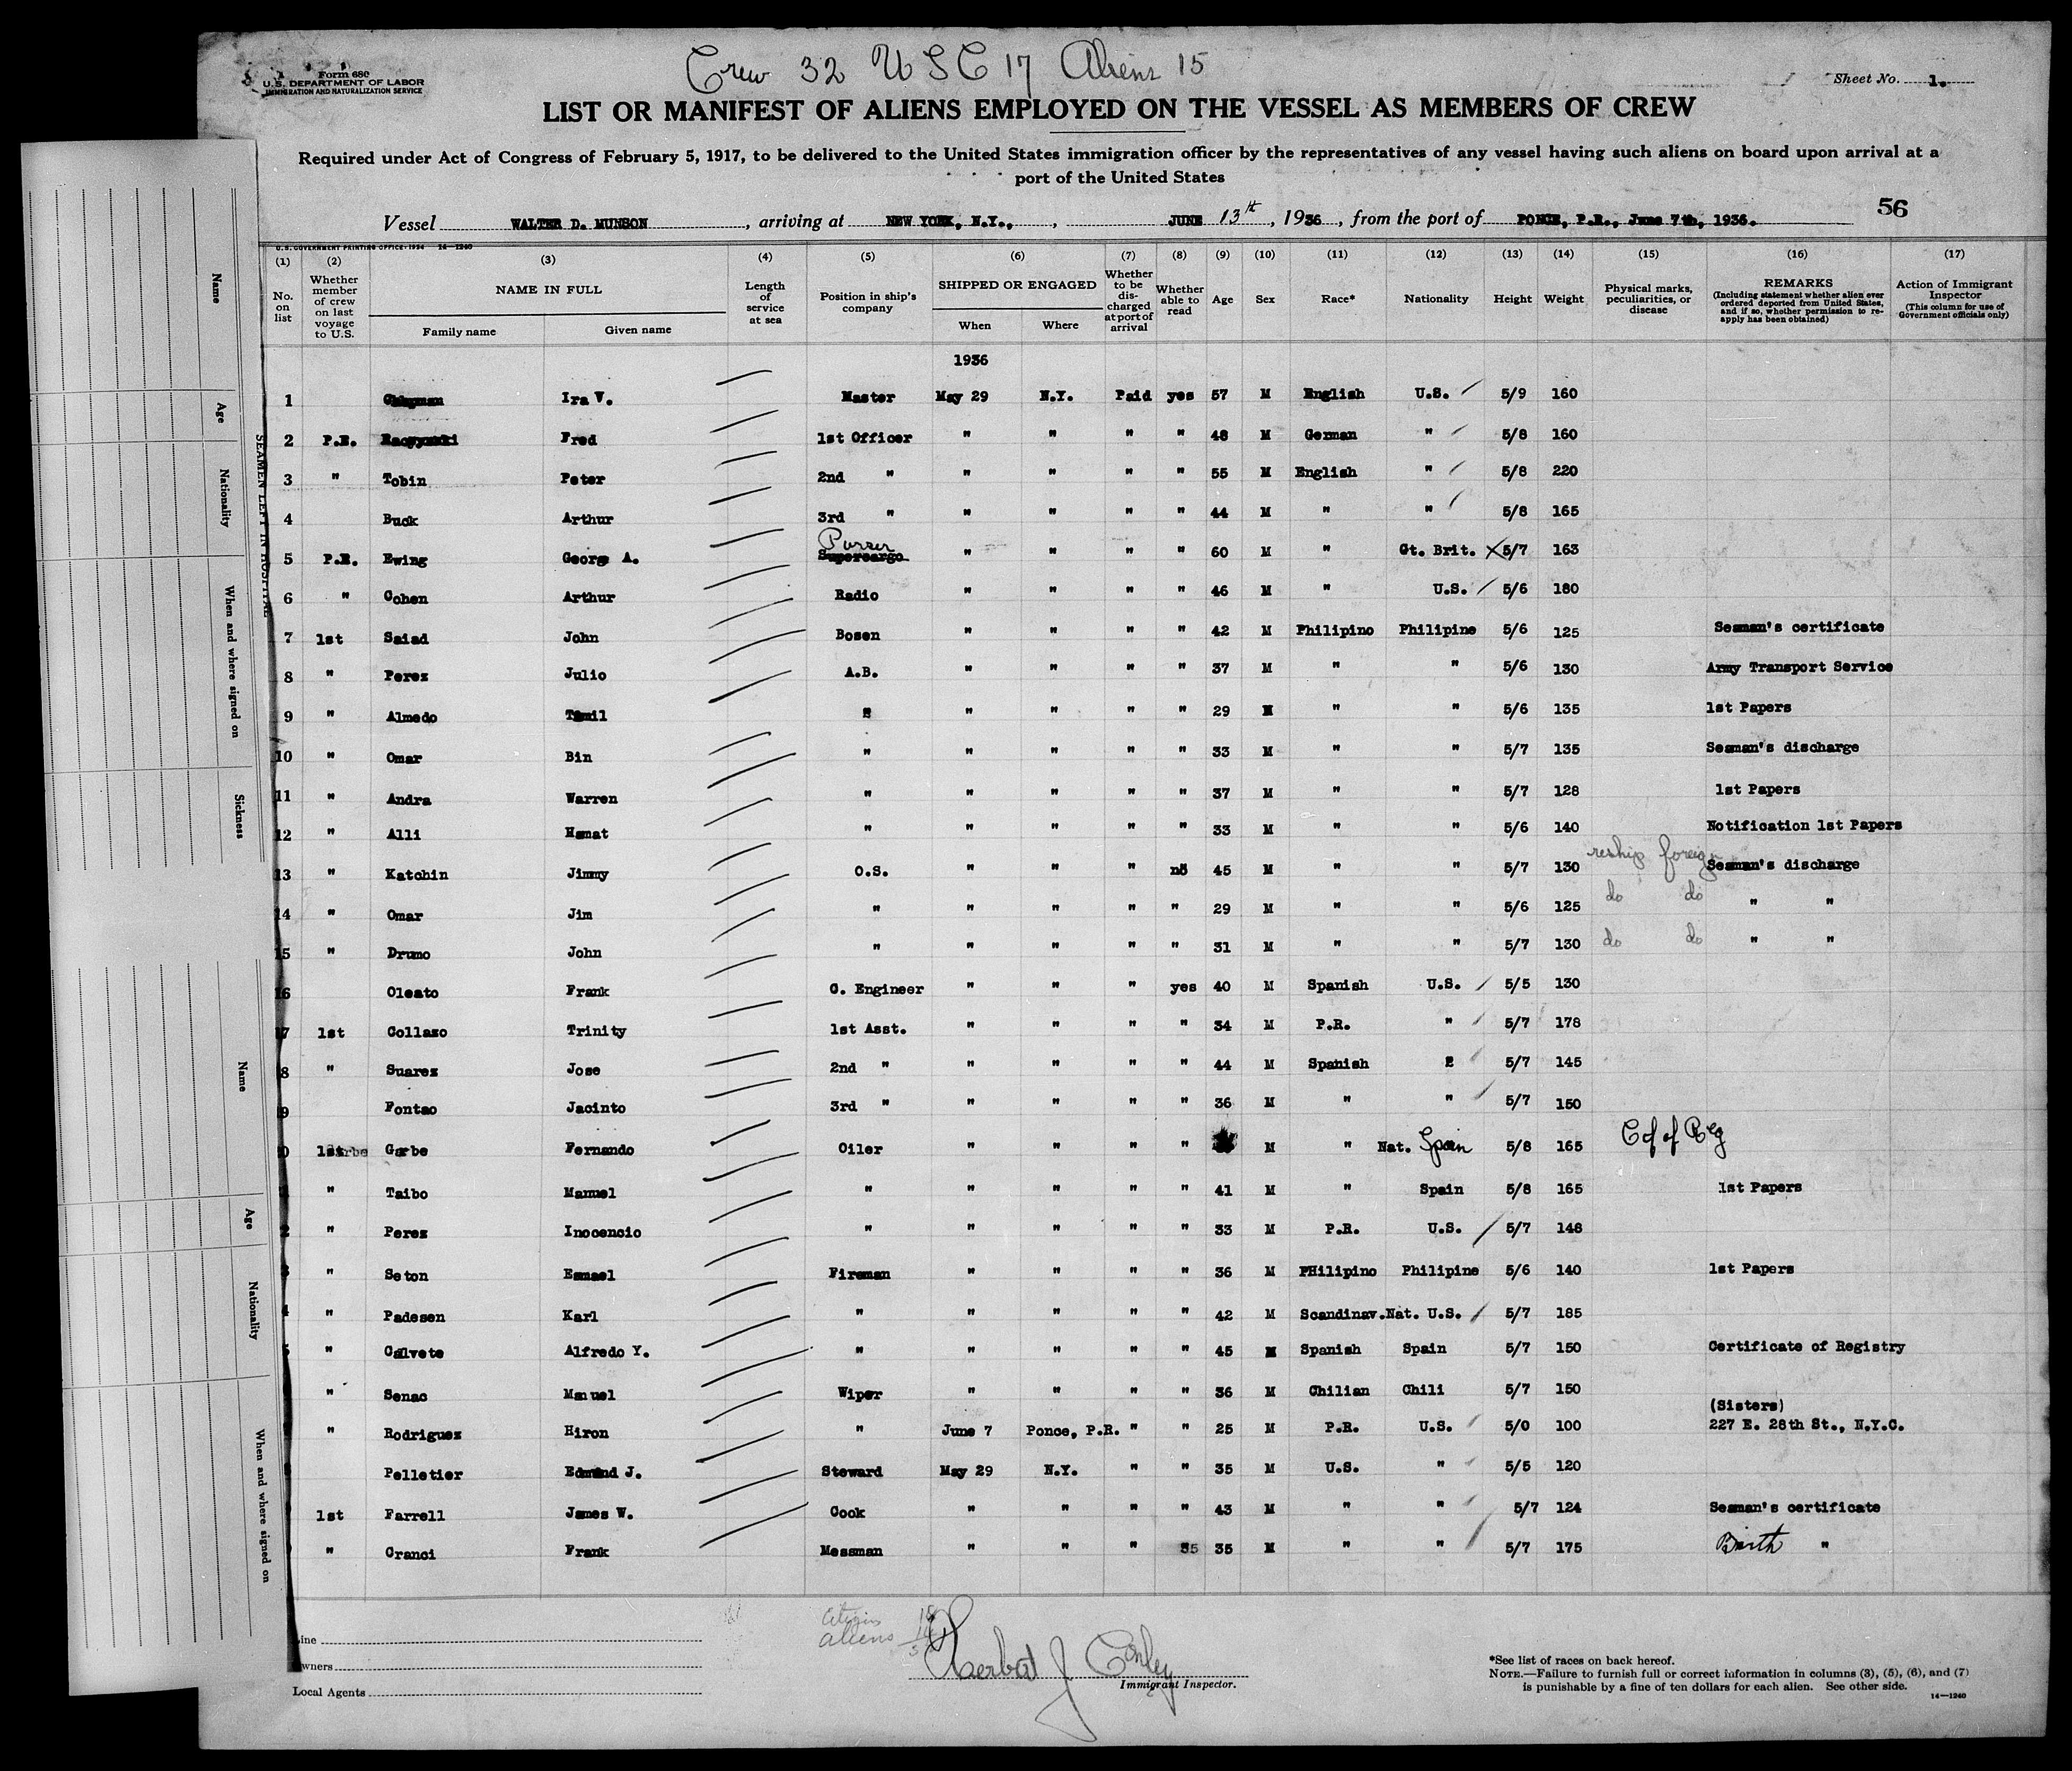 Crew 32 USC 17 Aliens 15
Form 680
U.S. DEPARTMENT OF LABOR
IMMIGRATION AND NATURALIZATION SERVICE
Sheet No. 1.
LIST OR MANIFEST OF ALIENS EMPLOYED ON THE VESSEL AS MEMBERS OF CREW
Required under Act of Congress of February 5, 1917, to be delivered to the United States immigration officer by the representatives of any vessel having such aliens on board upon arrival at a
port of the United States
56
Vessel WALTER D. MUNSON, arriving at NEW YORK, N.Y., , JUNE 13th, 1936, from the port of PONCE, P.R., June 7th, 1936.
U.S. GOVERNMENT PRINTING OFFICE: 1934 14—1240
(1) (2) (3) (4) (5) (6) (7) (8) (9) (10) (11) (12) (13) (14) (15) (16) (17)
No. on list
Whether member of crew on last voyage to U.S.
NAME IN FULL
Family name Given name
Length of service at sea
Position in ship's company
SHIPPED OR ENGAGED
When Where
Whether to be discharged at port of arrival
Whether able to read
Age Sex Race* Nationality Height Weight
Physical marks, peculiarities, or disease
REMARKS
(Including statement whether alien ever ordered deported from United States, and if so, whether permission to re-apply has been obtained)
Action of Immigrant Inspector
(This column for use of Government officials only)
1936
1 Ira V. Master May 29 N.Y. Paid yes 57 M English U.S. 5/9 160
2 P.R. Fred 1st Officer " " " " 48 M German " 5/8 160
3 " Tobin Peter 2nd " " " " " 55 M English " 5/8 220
4 Buck Arthur 3rd " " " " " 44 M " " 5/8 165
Purser
5 P.R. Ewing George A. Supercargo " " " " 60 M " Gt. Brit. X 5/7 163
6 " Cohen Arthur Radio " " " " 46 M " U.S. 5/6 180
7 1st Saiad John Bosen " " " " 42 M Philipino Philipine 5/6 125 Seaman's certificate
8 " Perez Julio A.B. " " " " 37 M " " 5/6 130 Army Transport Service
9 " Almedo " " " " 29 M " " 5/6 135 1st Papers
10 " Omar Bin " " " " " 33 M " " 5/7 135 Seaman's discharge
11 " Andra Warren " " " " " 37 M " " 5/7 128 1st Papers
12 " Alli Hamat " " " " " 33 M " " 5/6 140 Notification 1st Papers
13 " Katchin Jimmy O.S. " " " no 45 M " " 5/7 130 reship foreign Seaman's discharge
14 " Omar Jim " " " " " 29 M " " 5/6 125 do do " "
15 " Drumo John " " " " " 31 M " " 5/7 130 do do " "
16 Oleato Frank C. Engineer " " " yes 40 M Spanish U.S. 5/5 130
7 1st Collazo Trinity 1st Asst. " " " " 34 M P.R. " 5/7 178
8 " Suarez Jose 2nd " " " " " 44 M Spanish 2 5/7 145
9 Fontao Jacinto 3rd " " " " " 36 M " " 5/7 150
0 1st Garbe Fernando Oiler " " " " M " Nat. Spain 5/8 165 C of Reg
" Taibo Manuel " " " " " 41 M " Spain 5/8 165 1st Papers
2 " Perez Inocencio " " " " " 33 M P.R. U.S. 5/7 148
3 " Seton Esmael Fireman " " " " 36 M PHilipino Philipine 5/6 140 1st Papers
4 " Padesen Karl " " " " " 42 M Scandinav. Nat. U.S. 5/7 185
5 " Calvete Alfredo Y. " " " " " 45 M Spanish Spain 5/7 150 Certificate of Registry
" Senac Manuel Wiper " " " " 36 M Chilian Chili 5/7 150
(Sisters)
" Rodriguez Hiron " June 7 Ponce, P.R. " " 25 M P.R. U.S. 5/0 100 227 E. 28th St., N.Y.C.
Pelletier Edmund J. Steward May 29 N.Y. " " 35 M U.S. " 5/5 120
1st Farrell James W. Cook " " " " 43 M " " 5/7 124 Seaman's certificate
" Cranci Frank Messman " " " 35 35 M " " 5/7 175 Birth "
SEAMEN LEFT IN HOSPITAL
Name
Age
Nationality
When and where signed on
Sickness
Name
Age
Nationality
When and where signed on
Line
Owners
Local Agents
citizens
aliens
Herbert J Conley
Immigrant Inspector.
*See list of races on back hereof.
NOTE.—Failure to furnish full or correct information in columns (3), (5), (6), and (7)
is punishable by a fine of ten dollars for each alien. See other side.
14—1240